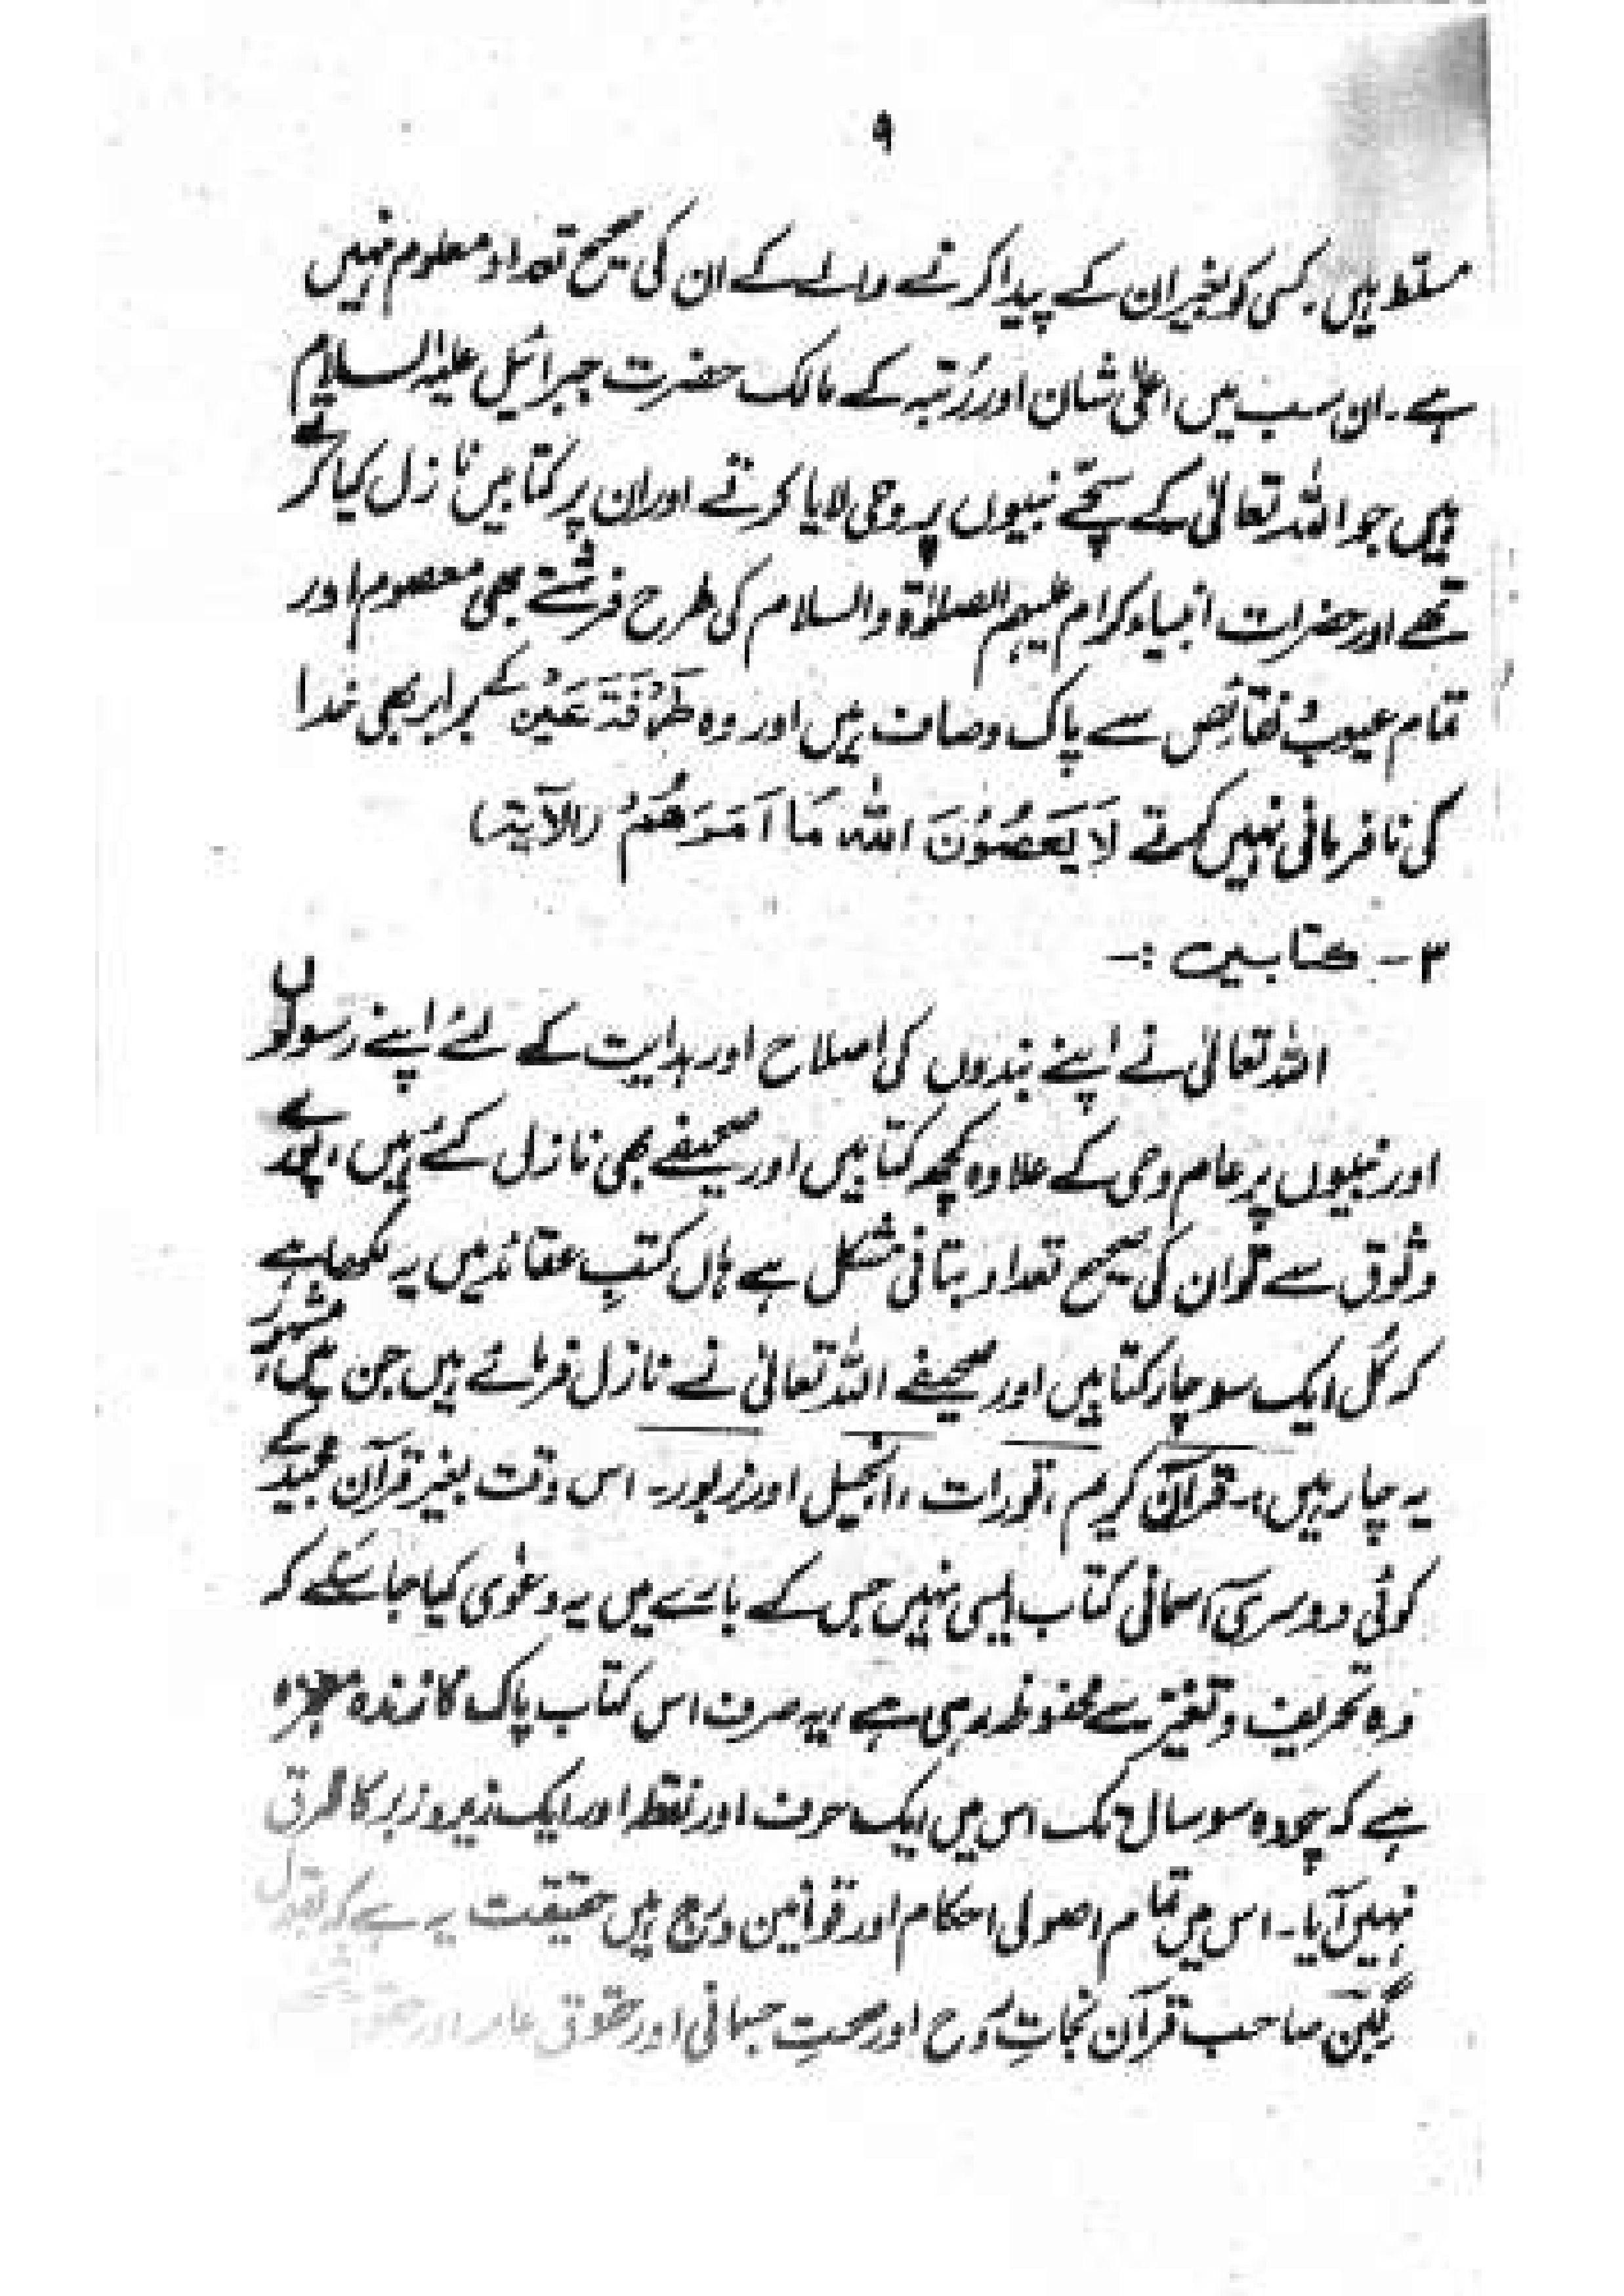 ۹
مسلط ہیں۔ کسی کو بغیر ان کے پیدا کرنے والے کے ان کی صحیح تعداد معلوم نہیں
ہے۔ ان سب میں اعلیٰ شان اور رُتبہ کے مالک حضرت جبرائیل علیہ السلام
ہیں جو اللہ تعالیٰ کے سچّے نبیوں پر وحی لایا کرتے اور ان پر کتابیں نازل کیا کرتے
تھے اور حضرات انبیاء کرام علیہم الصلوٰۃ والسلام کی طرح فرشتے بھی معصوم اور
تمام عیوب و نقائص سے پاک و صاف ہیں اور وہ طَرْفَۃَ عَیْنٍ کے برابر بھی خدا
کی نافرمانی نہیں کرتے لَا یَعْصُوْنَ اللّٰہَ مَا اَمَرَھُمْ (الآیۃ)
۳ - کتابیں :-
اللہ تعالیٰ نے اپنے بندوں کی اصلاح اور ہدایت کے لئے اپنے رسولوں
اور نبیوں پر عام وحی کے علاوہ کچھ کتابیں اور صحیفے بھی نازل کئے ہیں، پورے
وثوق سے تو ان کی صحیح تعداد بتانی مشکل ہے ہاں کتبِ عقائد میں یہ لکھا ہے
کہ کُل ایک سو چار کتابیں اور صحیفے اللہ تعالیٰ نے نازل فرمائے ہیں جن میں مشہور
یہ چار ہیں،۔ قرآن کریم، تورات، انجیل اور زبور۔ اس وقت بغیر قرآن مجید کے
کوئی دوسری آسمانی کتاب ایسی نہیں جس کے بارے میں یہ دعوٰی کیا جا سکے کہ
وہ تحریف و تغیّر سے محفوظ رہی ہے، یہ صرف اس کتاب پاک کا زندہ معجزہ
ہے کہ چودہ سو سال تک اس میں ایک حرف اور نقطہ اور ایک زیر و زبر کا فرق
نہیں آیا۔ اس میں تمام اصولی احکام اور قوانین درج ہیں حقیقت یہ ہے کہ بقول
گبّن صاحب قرآن نجاتِ رُوح اور صحتِ جسمانی اور حقوق عامہ اور حقوق